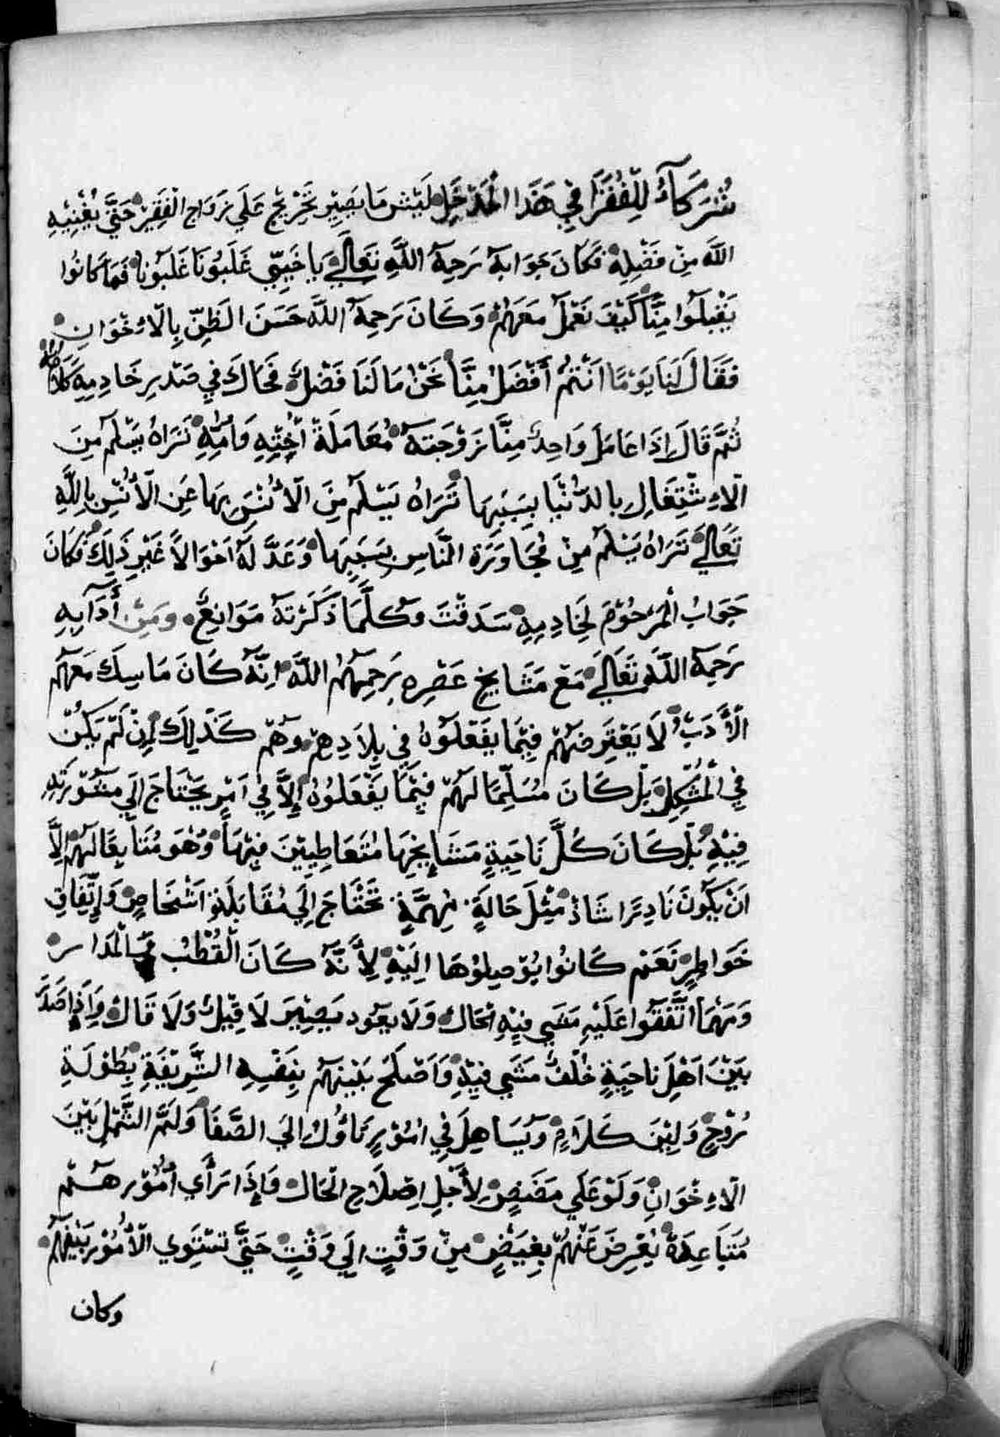 شُرَكَآءُ لِلْفُقَرَا فِي هَذَا الْمَدْخَلِ لَيْسَ مَا يَصِيْر تَخْرِيْجٌ عَلَي زَوَاجِ الْفَقِيْرِ حَتَّي يُغْنِيْهِ
اللَّهُ مِنْ فَضْلِهِ فَكَانَ جَوَابهُ رَحِمَهُ اللَّهِ تَعَالَي يَا حَبِيْبِي غَلَبُوْنَا غَلَبُوْنَا فَمَا كَانُوا
يَقْبَلُوا مِنَّا كَيْفَ نَعْمَلُ مَعَهُمْ وَكَانَ رَحِمَهُ اللَّهُ حَسَنَ الظَّنِّ بِالْاِخْوَانِ
فَقَالَ لَنَا يَوْمًا اَنْتُمْ أَفْضَلُ مِنَّا نَحْنُ مَا لَنَا فَضْلٌ فَحَاكَ فِي صَدْرِ خَادِمِهِ كَلَامُهُ
ثُمَّ قَالَ اِذَا عَامَلَ وَاحِدٌ مِنَّا زَوْجَتهُ مُعَامَلَةَ اُخْتِهِ وَاُمِّهِ تَرَاهُ يَسْلَمُ مِنَ
الْاِشْتِغَالِ بِالدُّنْيَا بِسَبَبِهَا تَرَاهُ يَسْلَمُ مِنَ الْاُنْسِ بِهَا عَنِ الْاُنْسِ بِاللَّهِ
تَعَالَي تَرَاهُ يَسْلَمُ مِنْ مُجَاوَرَةِ النَّاسِ بِسَبَبِهَا وَعَدَّ لَهُ اَحْوَالًا غَيْرِ ذَلِكَ فَكَانَ
جَوَابُ الْمَرْحُوْمِ لِخَادِمِهِ سَدَقْتَ وَكُلَّمَا ذَكَرْتهُ مَوَانِعٌ وَمِنْ أَدَآبِهِ
رَحِمَهُ اللَّهُ تَعَالَي مَعَ مَشَايِخِ عَصْرِهِ رَحِمَهُمُ اللَّهُ اِنَّهُ كَانَ مَاسِكَ مَعَهُمُ
الْأَدَبَ لَا يَعْتَرِضهُمْ فِيْمَا يَفْعَلُوْهُ فِي بِلَادِهِمْ وَهُمْ كَذَلِكَ اِنْ لَمْ يَكُنْ
فِي الْمُشْكِلِ بَلْ كَانَ مُسَلِّمًا لَهُمْ فِيْمَا يَفْعَلُوْهُ اِلَّا فِي اَمْرٍ يَحْتَاجَ اِلَي مَشْوَرَتِهِ
فِيْهِ بَلْ كَانَ كُلَّ نَاحِيَةٍ مَشَايِخِهَا مُتَعَاطِيِيْنَ فِيْهَا وَهُوَ مُتَابِعًا لَهُمْ اِلَّا
اَنْ يَكُوْنَ نَادِرًا شَاذْ مِثْلَ حَالَةٍ مُهِمَّةٍ تَحْتَاج اِلَي مُقَابَلَةِ اَشْخَاصٍ وَاِتِّفَاقِ
خَوَاطِرٍ نَعَمْ كَانُوا يُوْصِلُوْهَا اِلَيْهِ لِأَنَّهُ كَانَ الْقُطْبُ فِي الْمَدَار
وَمَهْمَا اتَّفَقُوا عَلَيْهِ مَشَي فِيْهِ الْحَال وَلَا يَعُود يَصِيْر لَا قِيْلٌ وَلَا قَال وَاِذَا صَدَرَ
بَيْنَ اَهْلِ نَاحِيَةٍ خُلْفٌ مَشَي فِيْهِ وَاَصْلَحَ بَيْنَهُمْ بِنَفْسِهِ الشَّرِيْفَةِ بِطُوْلَةِ
رُوْحٍ وَلِيْنَ كَلَامٍ وَيُسَاهِل فِي اُمُوْرٍ تَأُوْلُ اِلَي الصَّفَا وَلَمَّ الشَّمْلِ بَيْنَ
الْاِخْوَانِ وَلَوْ عَلَي مَضَضٍ لِأَجْلِ اِصْلَاحِ الْحَال فَاِذَا رَأَي اُمُوْرهُمْ
مُتَبَاعِدَةً يُعْرِضَ عَنْهُمْ بِغَيْضٍ مِنْ وَقْتٍ اِلَي وَقْتٍ حَتَّي تَسْتَوِي الْاُمُوْر بَيْنَهُمْ
وكان